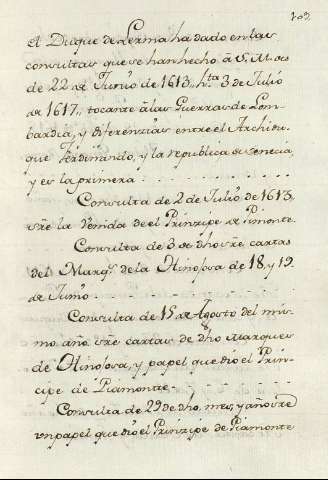 el Duque de Lerma ha dado en las
consultas que se han hecho à S. M. des
de 22 de Junio de 1613,, hta. 3 de Julio
de 1617,, tocante à las Guerras de Lom
bardia, y diferencias entre el Archidu
que Ferdinando, y la republica de Venecia
y es la primera
Consulta de 2 de Julio de 1613,
sre la Venida de el Prinzipe de Pimonte.
Consulta de 3 de dho sre cartas
del Marqs. de la Hinojosa de 18, y 19
de Junio
Consulta de 15 de Agosto del mis
mo año sre cartas de dho Marques
de Hinojosa, y papel que dio el Prin
cipe de Piamonte.
Consulta de 29 de dho mes, y año sre
un papel que dio el Prinzipe de Piamonte